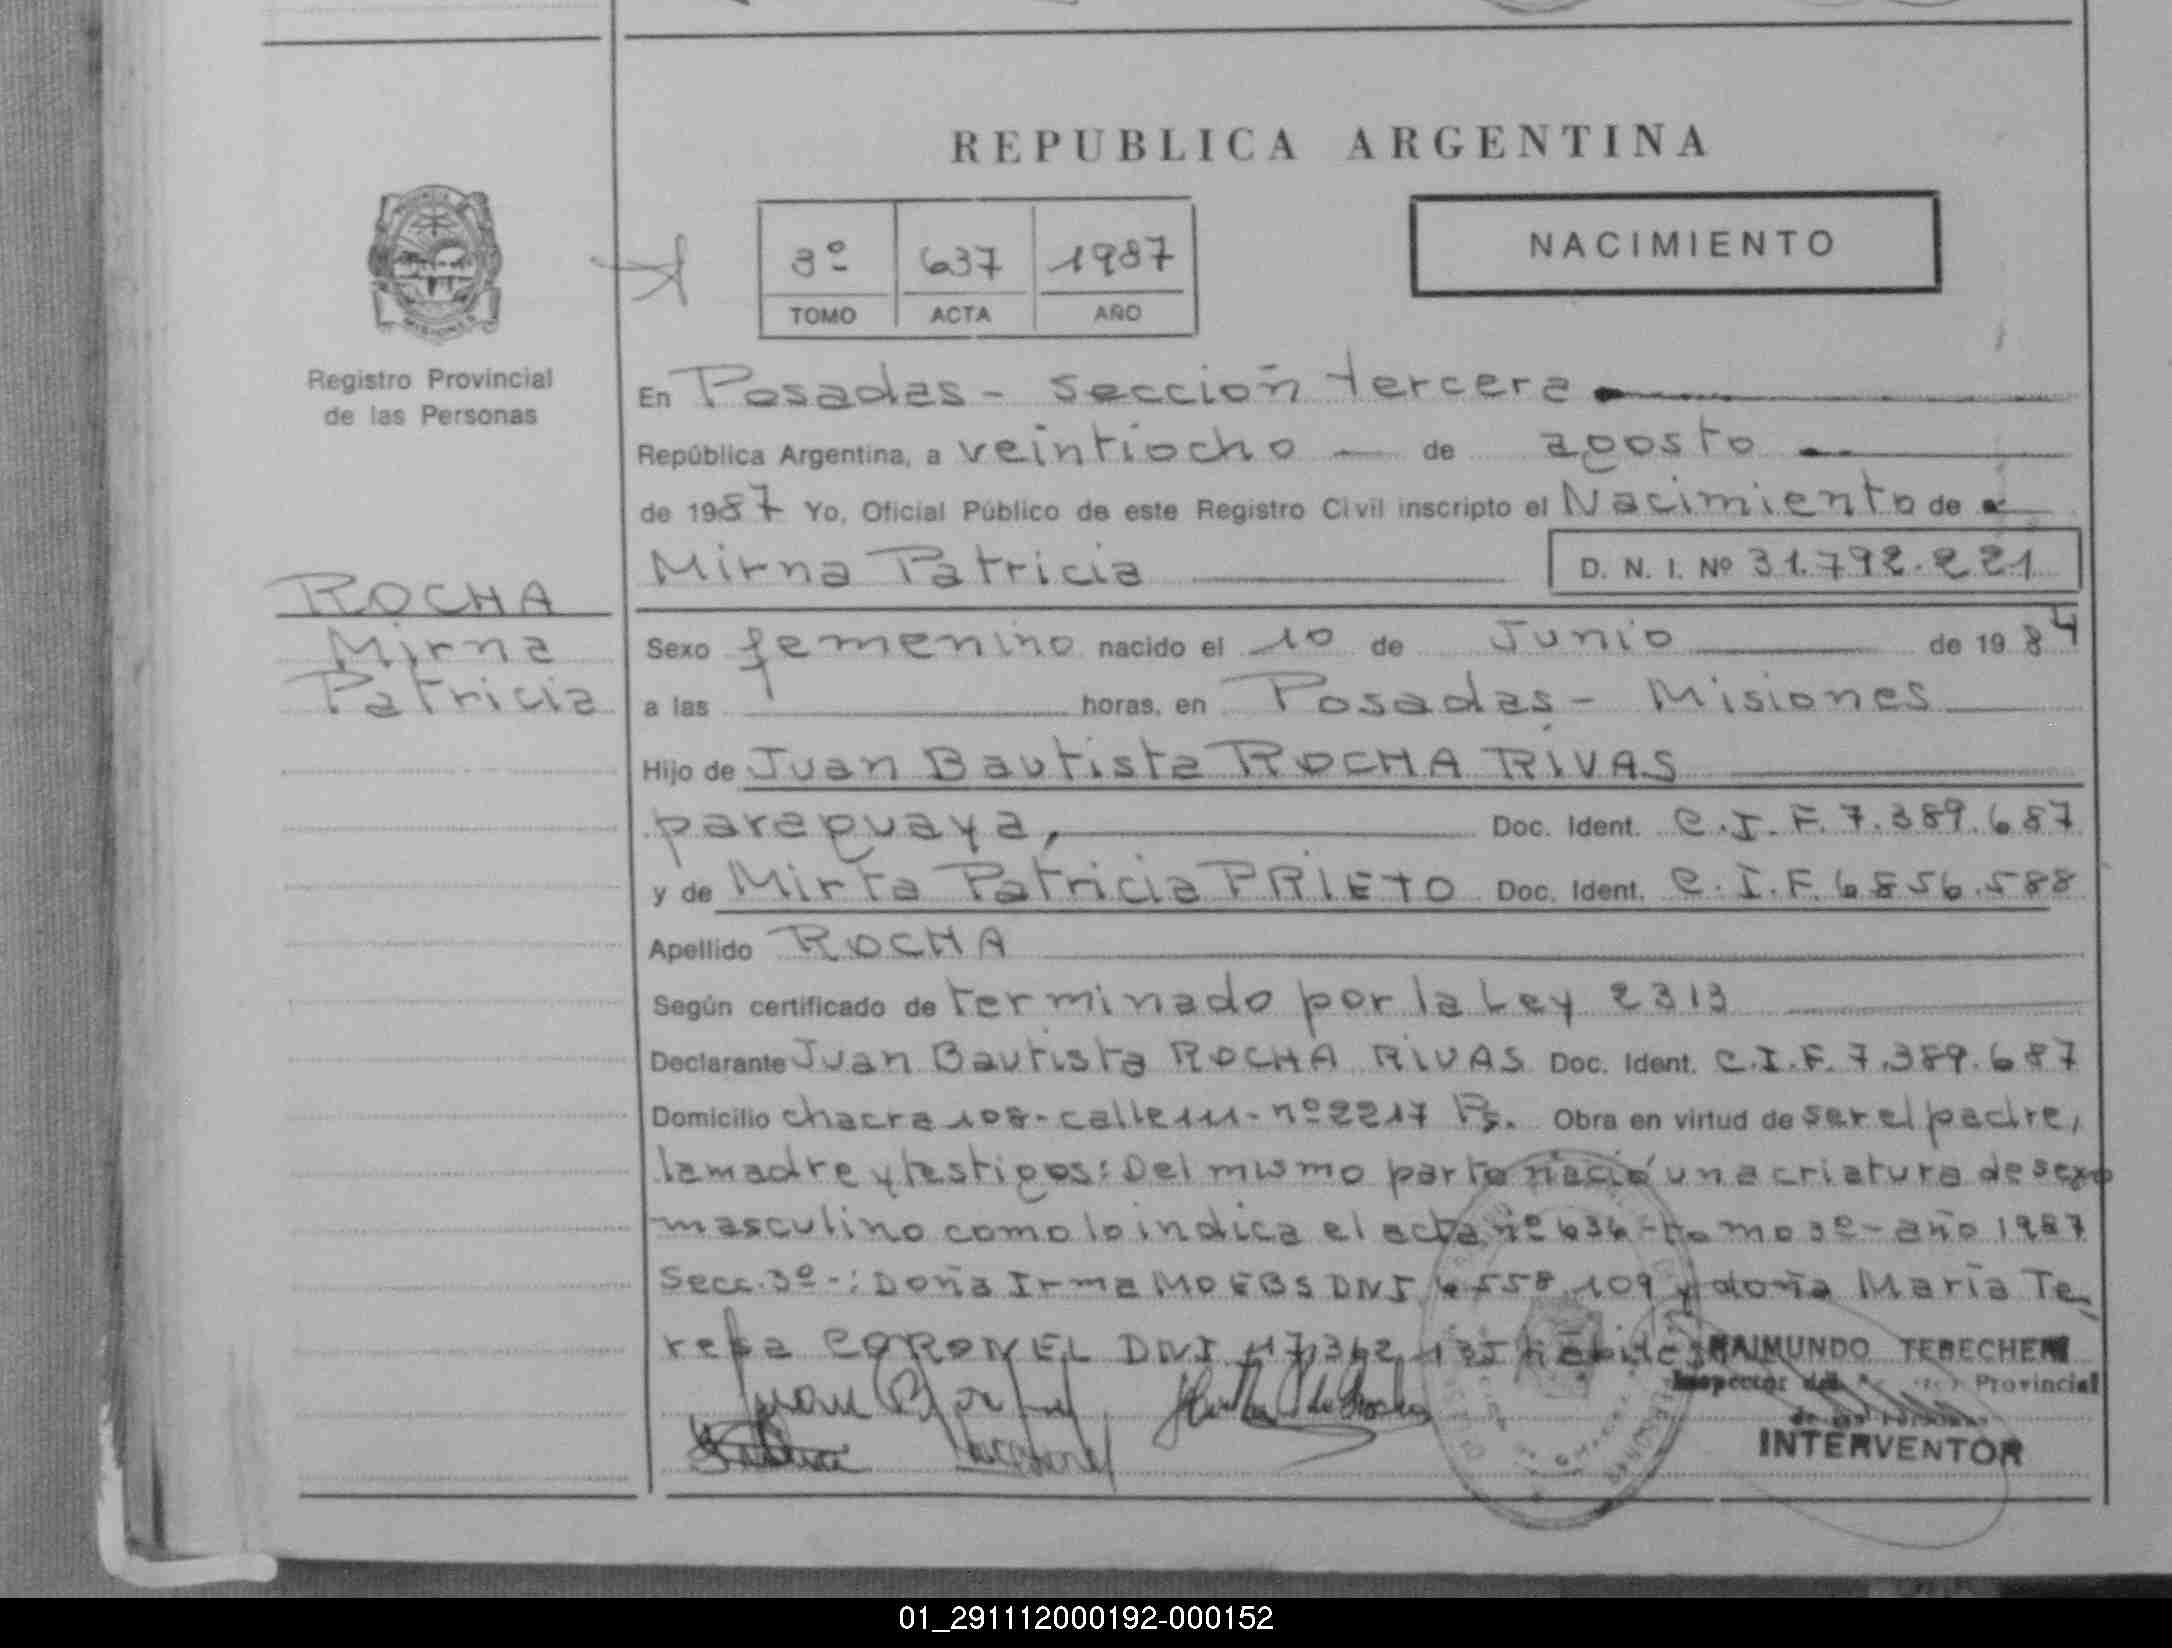 REPUBLICA ARGENTINA
NACIMIENTO
3º 637 1987
TOMO ACTA AÑO
MISIONES
Registro Provincial
de las Personas
En Posadas - sección tercera
República Argentina, a veintiocho de agosto
de 1987 Yo, Oficial Público de este Registro Civil inscripto el Nacimiento de
Mirna Patricia D. N. I. Nº 31.792.221
ROCHA
Mirna
Patricia
Sexo femenino nacido el 10 de Junio de 1984
a las horas, en Posadas - Misiones
Hijo de Juan Bautista ROCHA RIVAS
paraguaya, Doc. Ident. C.I.F. 7.389.687
y de Mirta Patricia PRIETO Doc. Ident. C.I.F. 6856.588
Apellido ROCHA
Según certificado de terminado por la Ley 2313
Declarante Juan Bautista ROCHA RIVAS Doc. Ident. C.I.F. 7.389.687
Domicilio chacra 108 - calle 111 - nº 2217 Ps. Obra en virtud de ser el padre,
la madre y testigos: Del mismo parto nació una criatura de sexo
masculino como lo indica el acta nº 636 - tomo 3º - año 1987
Secc. 3º -: Doña Irma MOEBS DNI 6558.109 y doña María Te-
resa CORONEL DNI 17.362.135 hábiles
RAIMUNDO TERECHEN
Inspector del Provincial
de las Personas
INTERVENTOR
01_291112000192-000152